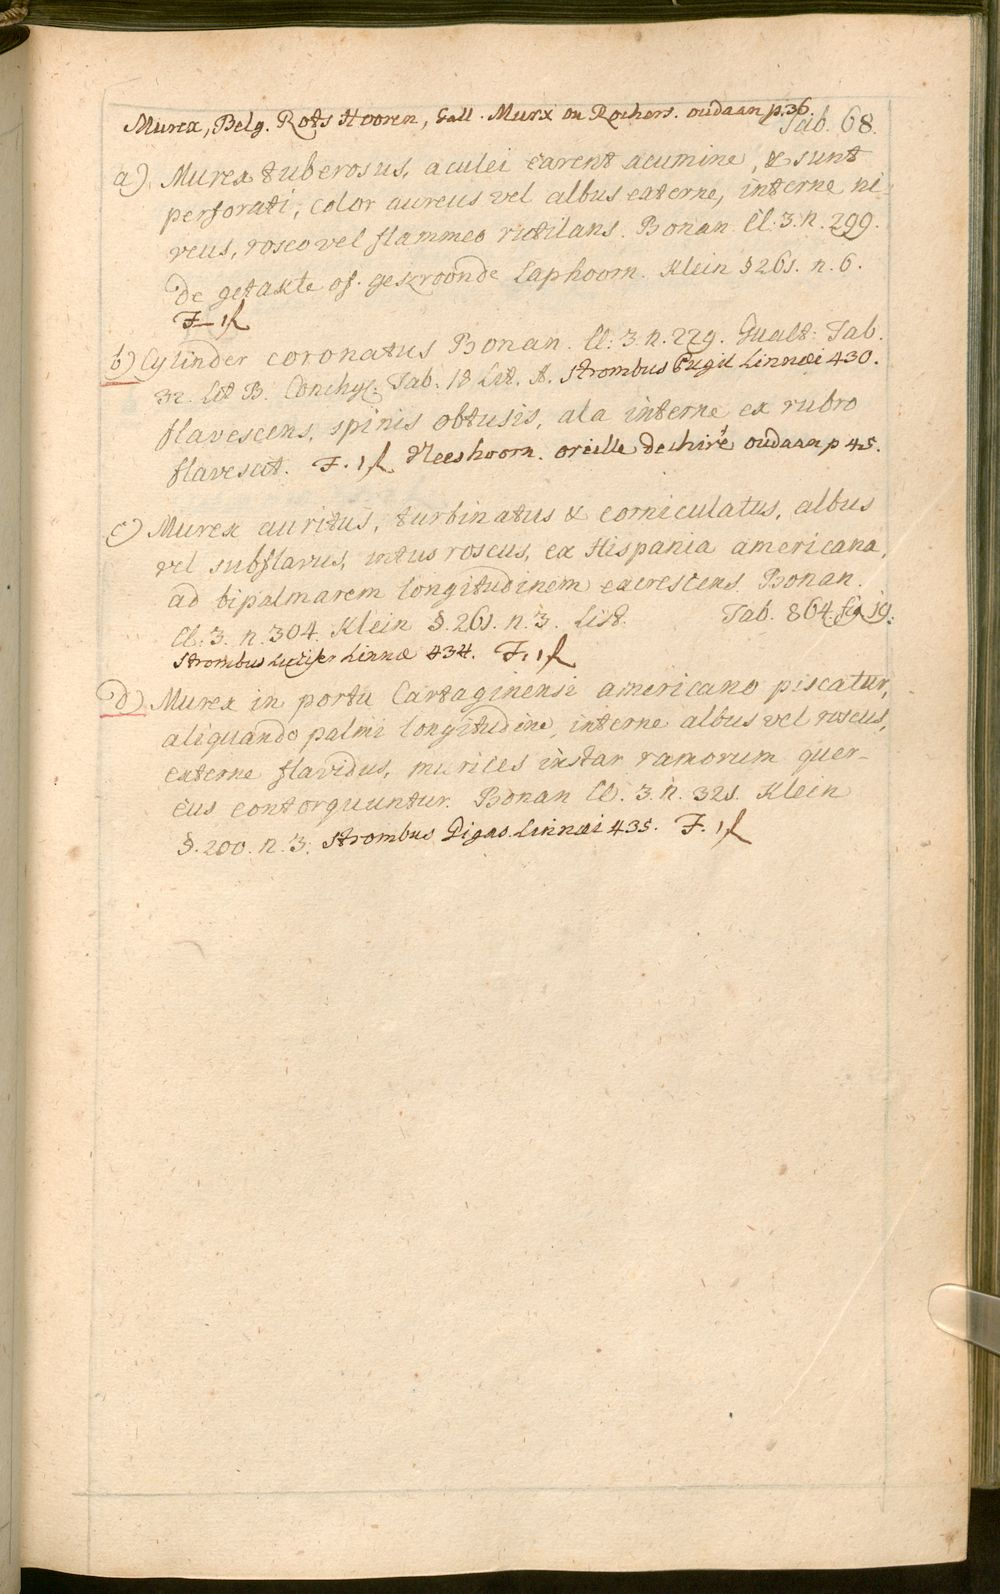 Murex, Belg. Rots Hooren, Gall. Murx ou Rochers. oudaan p.36.
Tab. 68.
a) Murex tuberosus, aculei carent acumine, & sunt
perforati, color aureus vel albus externe, interne ni-
veus, roseo vel flammeo rutilans. Bonan Cl. 3. n. 299.
De getakte of. gekroonde Laphoorn. Klein § 261. n. 6.
F–1f
b) Cylinder coronatus Bonan. Cl. 3. n. 229. Gualt: Tab.
32. Lit B. Conchyl. Tab. 18 Lit. A. Strombus Pugil Linnæi 430.
flavescens, spinis obtusis, ala interne ex rubro
flavescit. F. 1f Neeshoorn. oreille dechiré oudaan p 45.
c) Murex auritus, turbinatus & corniculatus, albus
vel subflavus, intus roseus, ex Hispania americana,
ad bipalmarem longitudinem excrescens Bonan.
Cl. 3. n. 304. Klein §. 261. n. 3. List. Tab. 864. fig 19.
Strombus Lucifer Linnæ 434. F. 1f
d) Murex in portu Cartaginensi americano piscatur,
aliquando palmi longitudine, interne albus vel roseus,
externe flavidus, murices instar ramorum quer-
cus contorquuntur. Bonan Cl. 3. n. 321. Klein
§. 200. n. 3. Strombus Gigas Linnæi 435. F. 1f